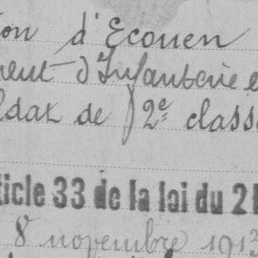 ion d'Ecouen
ment d'Infanterie e
ldat de 2e class
ticle 33 de la loi du 2
8 novembre 1913